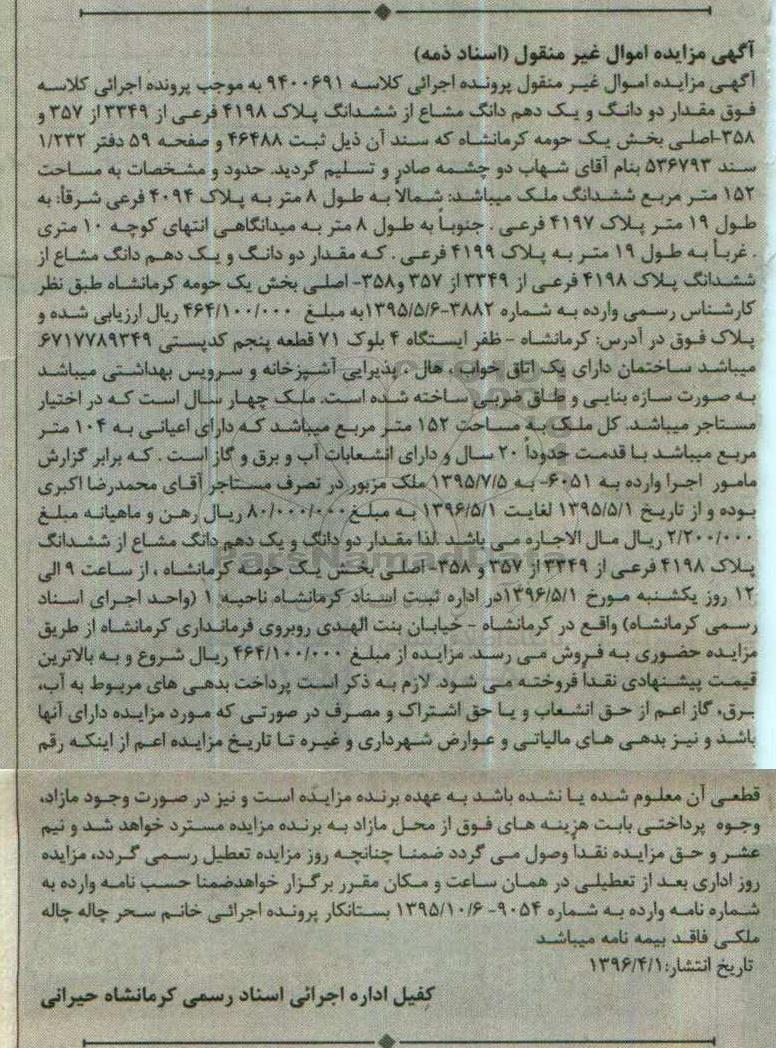 آگهی مزایده اموال غیر منقول (اسناد ذمه)
آگهی مزایده اموال غیر منقول پرونده اجرائی کلاسه ۹۴۰۰۶۹۱ به موجب پرونده اجرائی کلاسه
فوق مقدار دو دانگ و یک دهم دانگ مشاع از ششدانگ پلاک ۴۱۹۸ فرعی از ۳۳۴۹ از ۳۵۷ و
۳۵۸-اصلی بخش یک حومه کرمانشاه که سند آن ذیل ثبت ۴۶۴۸۸ و صفحه ۵۹ دفتر ۱/۲۳۲
سند ۵۳۶۷۹۳ بنام آقای شهاب دو چشمه صادر و تسلیم گردید. حدود و مشخصات به مساحت
۱۵۲ متر مربع ششدانگ ملک میباشد: شمالاً به طول ۸ متر به پلاک ۴۰۹۴ فرعی شرقاً: به
طول ۱۹ متر پلاک ۴۱۹۷ فرعی . جنوباً به طول ۸ متر به میدانگاهی انتهای کوچه ۱۰ متری
. غرباً به طول ۱۹ متر به پلاک ۴۱۹۹ فرعی . که مقدار دو دانگ و یک دهم دانگ مشاع از
ششدانگ پلاک ۴۱۹۸ فرعی از ۳۳۴۹ از ۳۵۷ و۳۵۸- اصلی بخش یک حومه کرمانشاه طبق نظر
کارشناس رسمی وارده به شماره ۳۸۸۲-۱۳۹۵/۵/۶به مبلغ ۴۶۴/۱۰۰/۰۰۰ ریال ارزیابی شده و
پلاک فوق در آدرس: کرمانشاه - ظفر ایستگاه ۴ بلوک ۷۱ قطعه پنجم کدپستی ۶۷۱۷۷۸۹۳۴۹
میباشد ساختمان دارای یک اتاق خواب ، هال ، پذیرایی آشپزخانه و سرویس بهداشتی میباشد
به صورت سازه بنایی و طاق ضربی ساخته شده است. ملک چهار سال است که در اختیار
مستاجر میباشد. کل ملک به مساحت ۱۵۲ متر مربع میباشد که دارای اعیانی به ۱۰۴ متر
مربع میباشد با قدمت حدوداً ۲۰ سال و دارای انشعابات آب و برق و گاز است . که برابر گزارش
مامور اجرا وارده به ۶۰۵۱- به ۱۳۹۵/۷/۵ ملک مزبور در تصرف مستاجر آقای محمدرضا اکبری
بوده و از تاریخ ۱۳۹۵/۵/۱ لغایت ۱۳۹۶/۵/۱ به مبلغ ۸۰/۰۰۰/۰۰۰ ریال رهن و ماهیانه مبلغ
۲/۲۰۰/۰۰۰ ریال مال الاجاره می باشد .لذا مقدار دو دانگ و یک دهم دانگ مشاع از ششدانگ
پلاک ۴۱۹۸ فرعی از ۳۳۴۹ از ۳۵۷ و ۳۵۸- اصلی بخش یک حومه کرمانشاه ، از ساعت ۹ الی
۱۲ روز یکشنبه مورخ ۱۳۹۶/۵/۱در اداره ثبت اسناد کرمانشاه ناحیه ۱ (واحد اجرای اسناد
رسمی کرمانشاه) واقع در کرمانشاه - خیابان بنت الهدی روبروی فرمانداری کرمانشاه از طریق
مزایده حضوری به فروش می رسد. مزایده از مبلغ ۴۶۴/۱۰۰/۰۰۰ ریال شروع و به بالاترین
قیمت پیشنهادی نقداً فروخته می شود. لازم به ذکر است پرداخت بدهی های مربوط به آب،
برق، گاز اعم از حق انشعاب و یا حق اشتراک و مصرف در صورتی که مورد مزایده دارای آنها
باشد و نیز بدهی های مالیاتی و عوارض شهرداری و غیره تا تاریخ مزایده اعم از اینکه رقم
قطعی آن معلوم شده یا نشده باشد به عهده برنده مزایده است و نیز در صورت وجود مازاد،
وجوه پرداختی بابت هزینه های فوق از محل مازاد به برنده مزایده مسترد خواهد شد و نیم
عشر و حق مزایده نقداً وصول می گردد ضمنا چنانچه روز مزایده تعطیل رسمی گردد، مزایده
روز اداری بعد از تعطیلی در همان ساعت و مکان مقرر برگزار خواهدضمنا حسب نامه وارده به
شماره نامه وارده به شماره ۹۰۵۴- ۱۳۹۵/۱۰/۶ بستانکار پرونده اجرائی خانم سحر چاله چاله
ملکی فاقد بیمه نامه میباشد
تاریخ انتشار:۱۳۹۶/۴/۱
کفیل اداره اجرائی اسناد رسمی کرمانشاه حیرانی